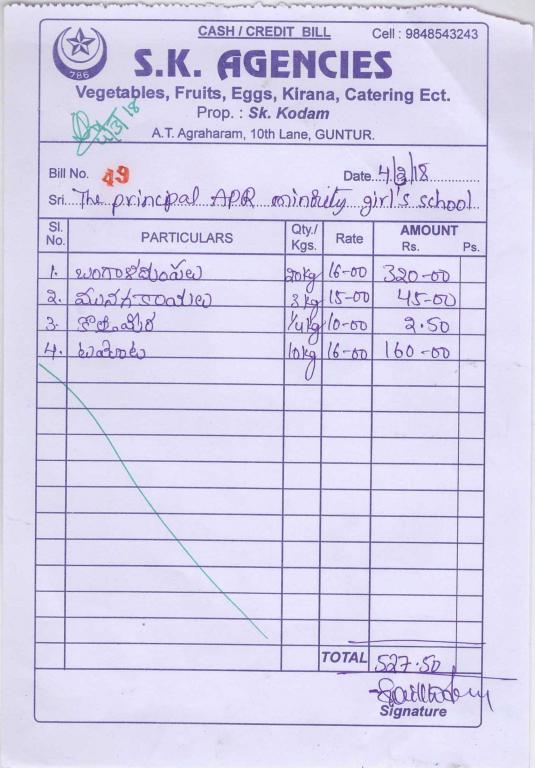 CASH / CREDIT BILL Cell : 9848543243
786
S.K. AGENCIES
Vegetables, Fruits, Eggs, Kirana, Catering Ect.
Prop. : Sk. Kodam
A.T. Agraharam, 10th Lane, GUNTUR.
Bill No. 49 Date 4/2/18
Sri. The principal APR minority girl's school
Sl. No. PARTICULARS Qty./ Kgs. Rate AMOUNT Rs. Ps.
1. బంగాళదుంపలు 20kg 16-00 320-00
2. మునగకాయలు 3kg 15-00 45-00
3. కొత్తిమీర 1/4kg 10-00 2.50
4. టమోటా 10kg 16-00 160-00
TOTAL 527.50
Signature